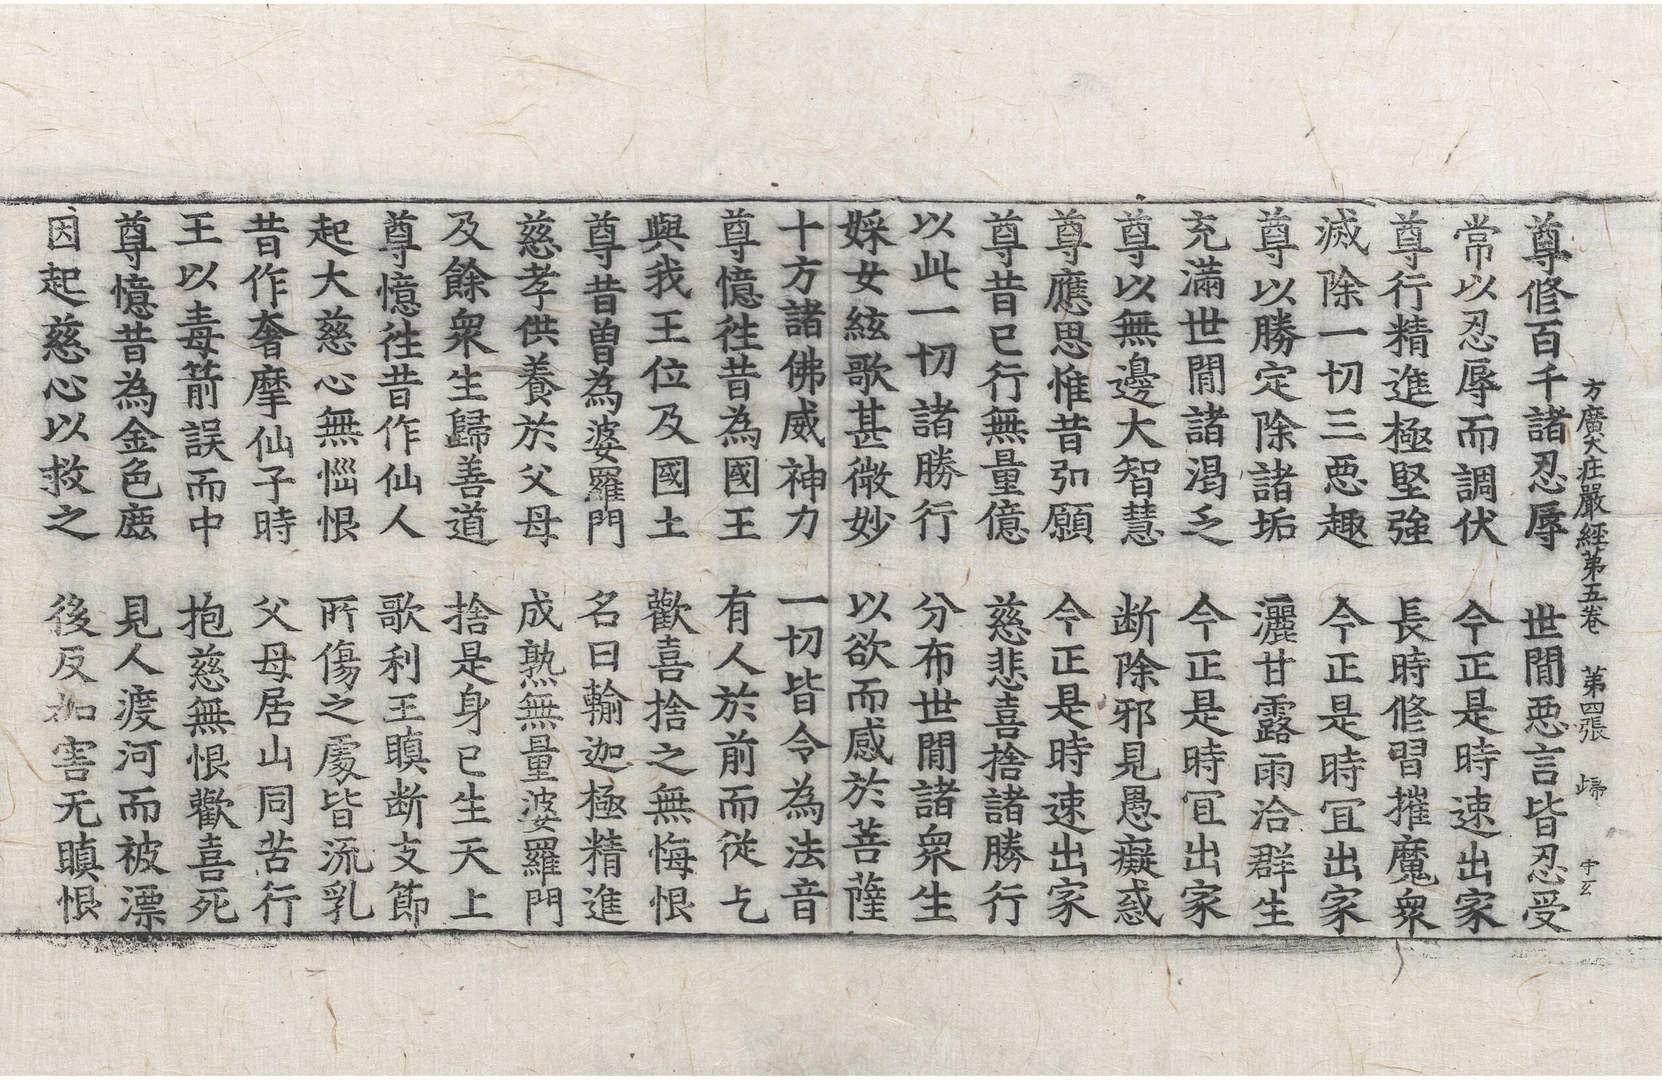 方廣大莊嚴經第五卷 第四張 歸 字玄
尊修百千諸忍辱 世間惡言皆忍受
常以忍辱而調伏 今正是時速出家
尊行精進極堅強 長時修習摧魔衆
滅除一切三惡趣 今正是時宜出家
尊以勝定除諸垢 灑甘露雨洽群生
充滿世間諸渴乏 今正是時宜出家
尊以無邊大智慧 断除邪見愚癡惑
尊應思惟昔弘願 今正是時速出家
尊昔已行無量億 慈悲喜捨諸勝行
以此一切諸勝行 分布世間諸衆生
婇女絃歌甚微妙 以欲而感於菩薩
十方諸佛威神力 一切皆令為法音
尊憶往昔為國王 有人於前而從乞
與我王位及國土 歡喜捨之無悔恨
尊昔曽為婆羅門 名曰輸迦極精進
慈孝供養於父母 成熟無量婆羅門
及餘衆生歸善道 捨是身已生天上
尊憶往昔作仙人 歌利王瞋断支節
起大慈心無惱恨 所傷之處皆流乳
昔作奢摩仙子時 父母居山同苦行
王以毒箭誤而中 抱慈無恨歡喜死
尊憶昔為金色鹿 見人渡河而被漂
因起慈心以救之 後反加害无瞋恨